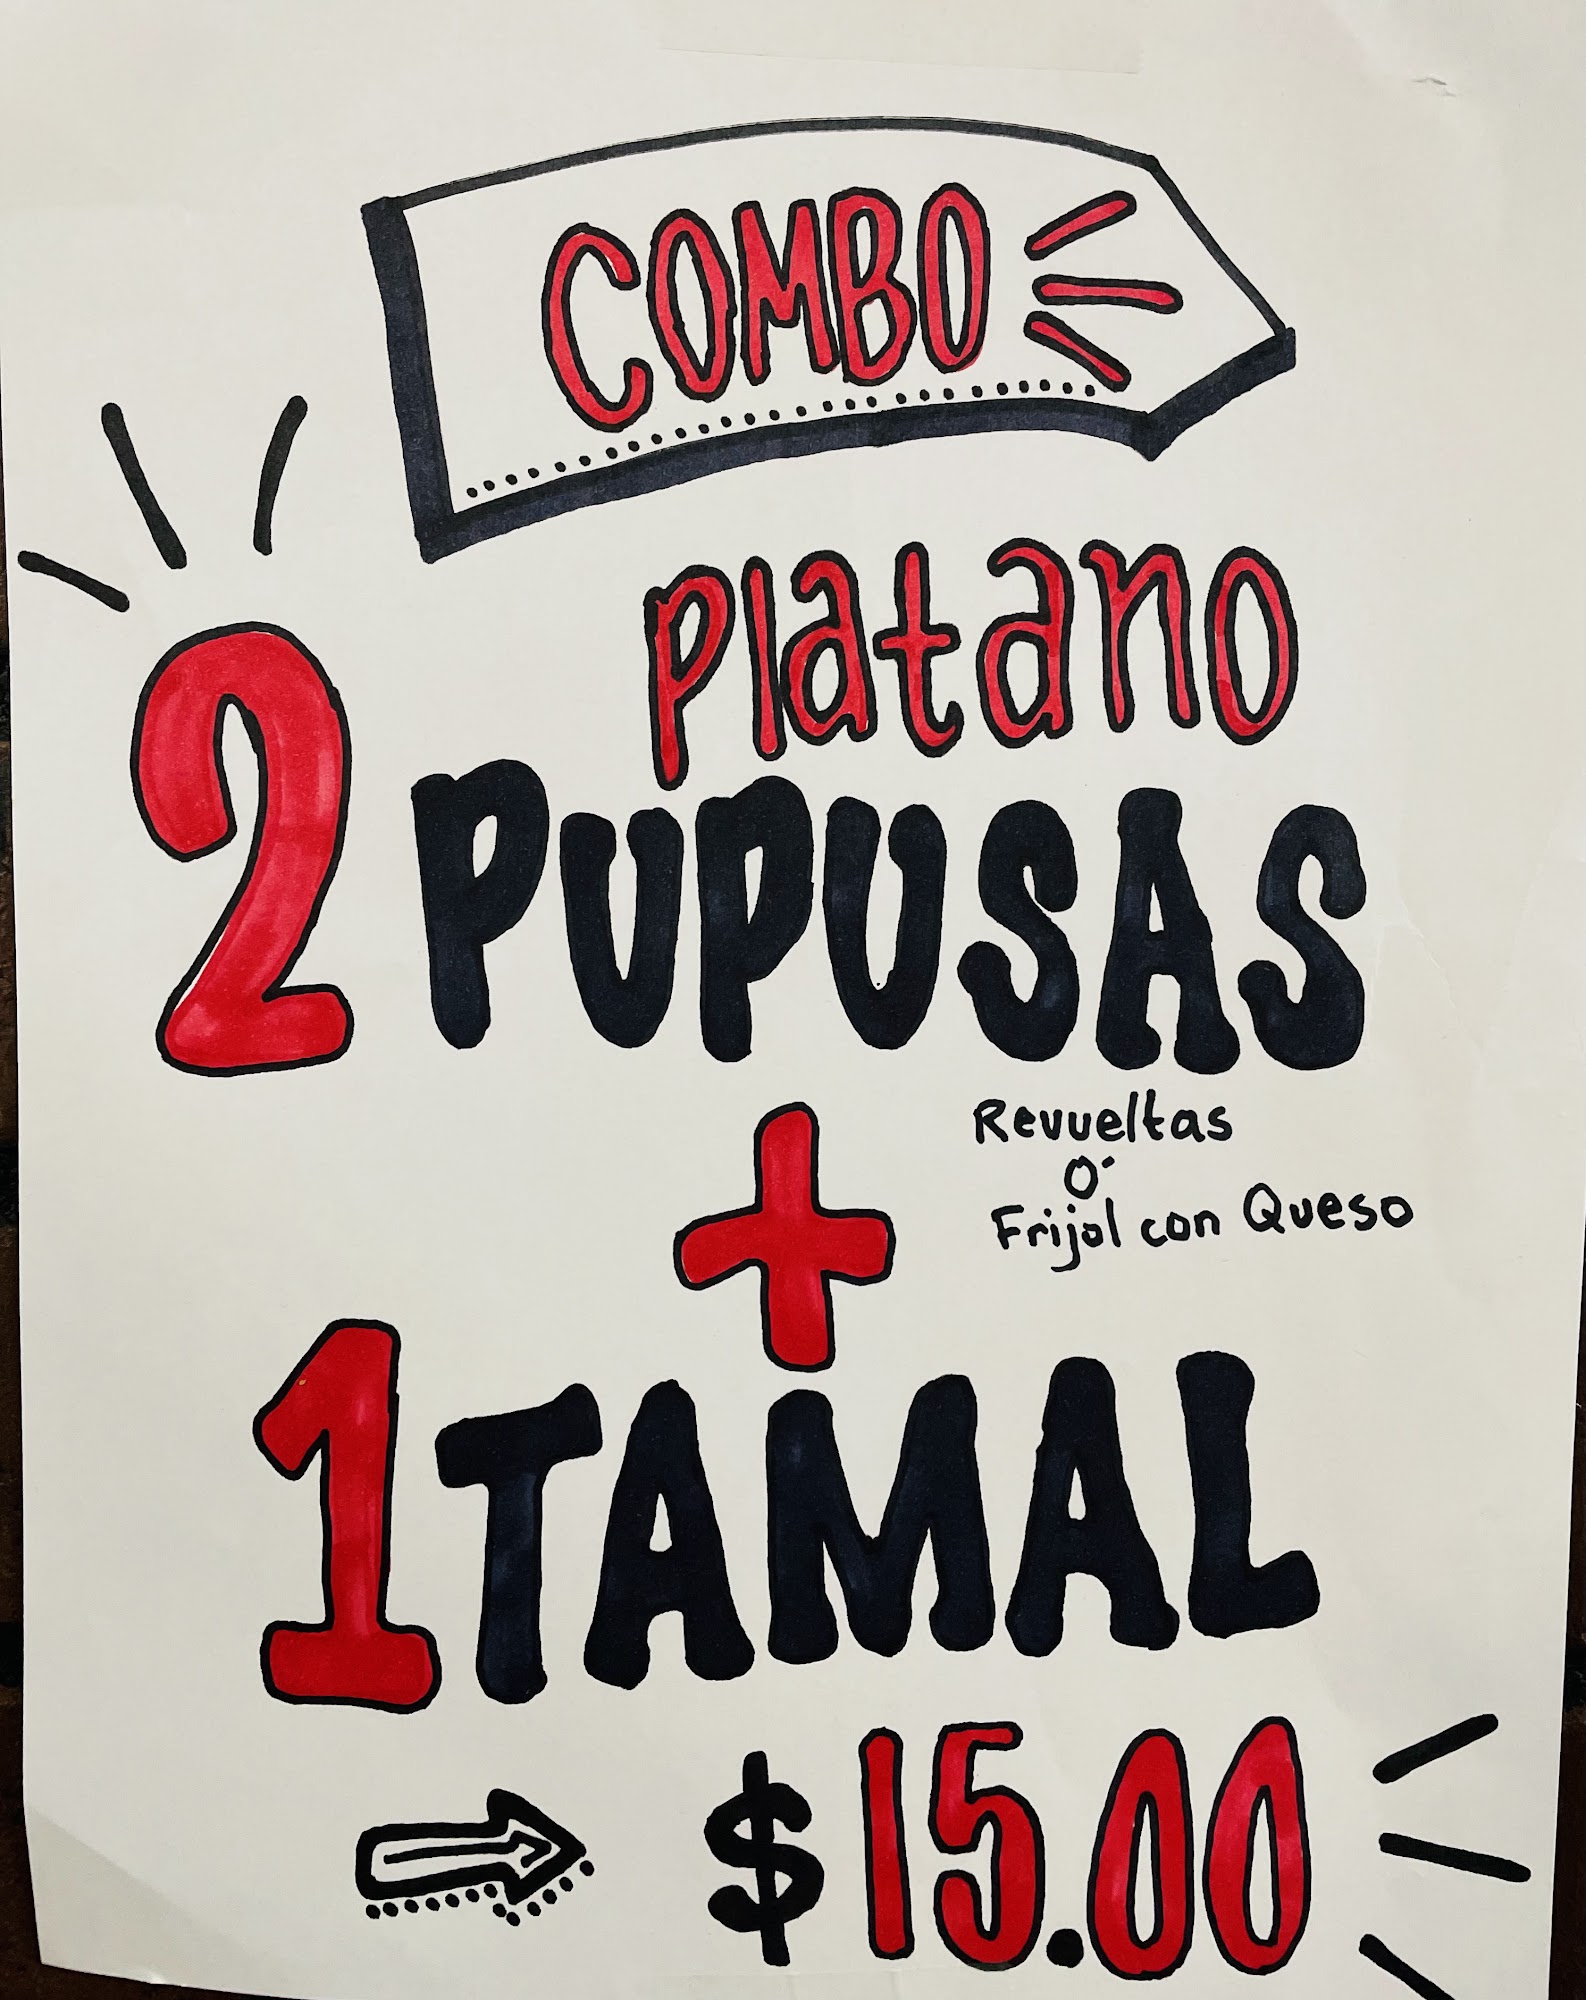 COMBO
Platano
2 PUPUSAS
Revueltas
Ó
Frijol con Queso
+
1 TAMAL
$15.00